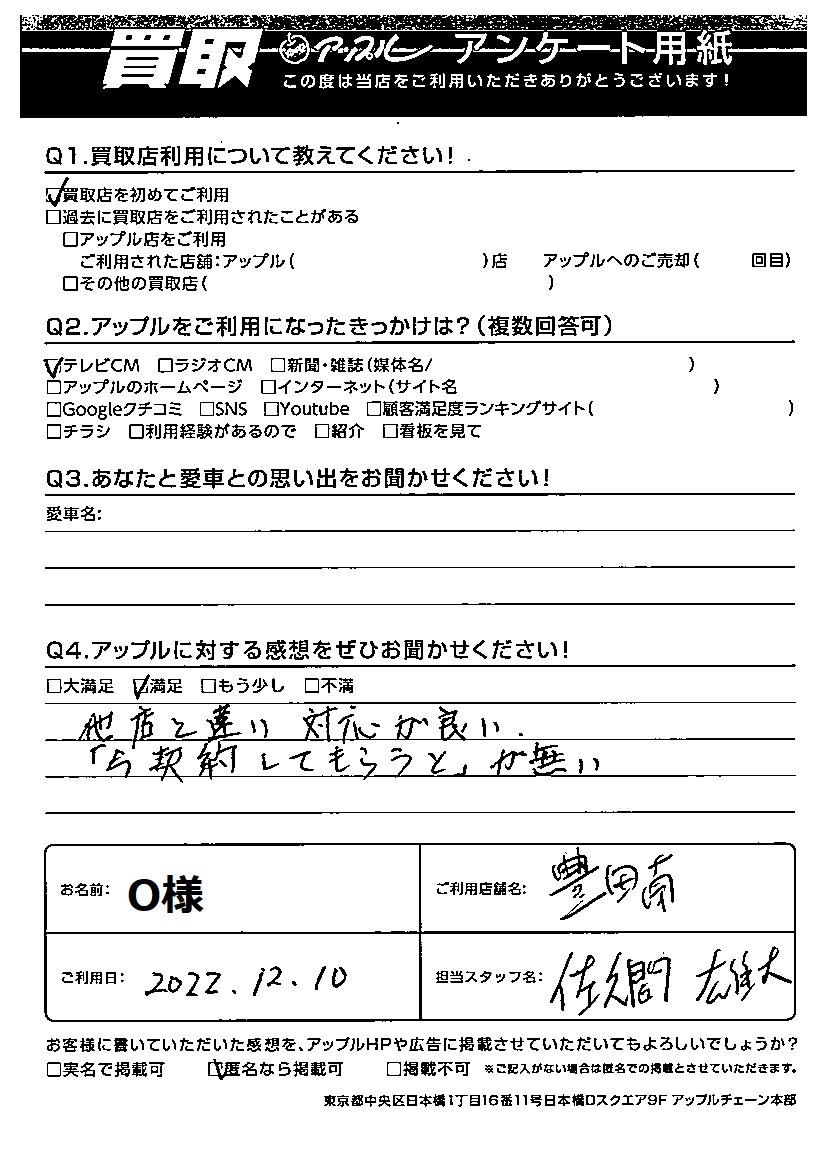 買取 アップル アンケート用紙
この度は当店をご利用いただきありがとうございます!
Q1.買取店利用について教えてください!
☑買取店を初めてご利用
□過去に買取店をご利用されたことがある
□アップル店をご利用
ご利用された店舗:アップル( )店 アップルへのご売却( 回目)
□その他の買取店( )
Q2.アップルをご利用になったきっかけは?(複数回答可)
☑テレビCM □ラジオCM □新聞・雑誌(媒体名/ )
□アップルのホームページ □インターネット(サイト名 )
□Googleクチコミ □SNS □Youtube □顧客満足度ランキングサイト( )
□チラシ □利用経験があるので □紹介 □看板を見て
Q3.あなたと愛車との思い出をお聞かせください!
愛車名:
Q4.アップルに対する感想をぜひお聞かせください!
□大満足 ☑満足 □もう少し □不満
他店と違い 対応が良い.
「今契約してもらうと」が無い
お名前: O様 ご利用店舗名: 豊田南
ご利用日: 2022.12.10 担当スタッフ名: 佐久間 雄大
お客様に書いていただいた感想を、アップルHPや広告に掲載させていただいてもよろしいでしょうか?
□実名で掲載可 ☑匿名なら掲載可 □掲載不可 ※ご記入がない場合は匿名での掲載とさせていただきます。
東京都中央区日本橋1丁目16番11号日本橋Dスクエア9F アップルチェーン本部